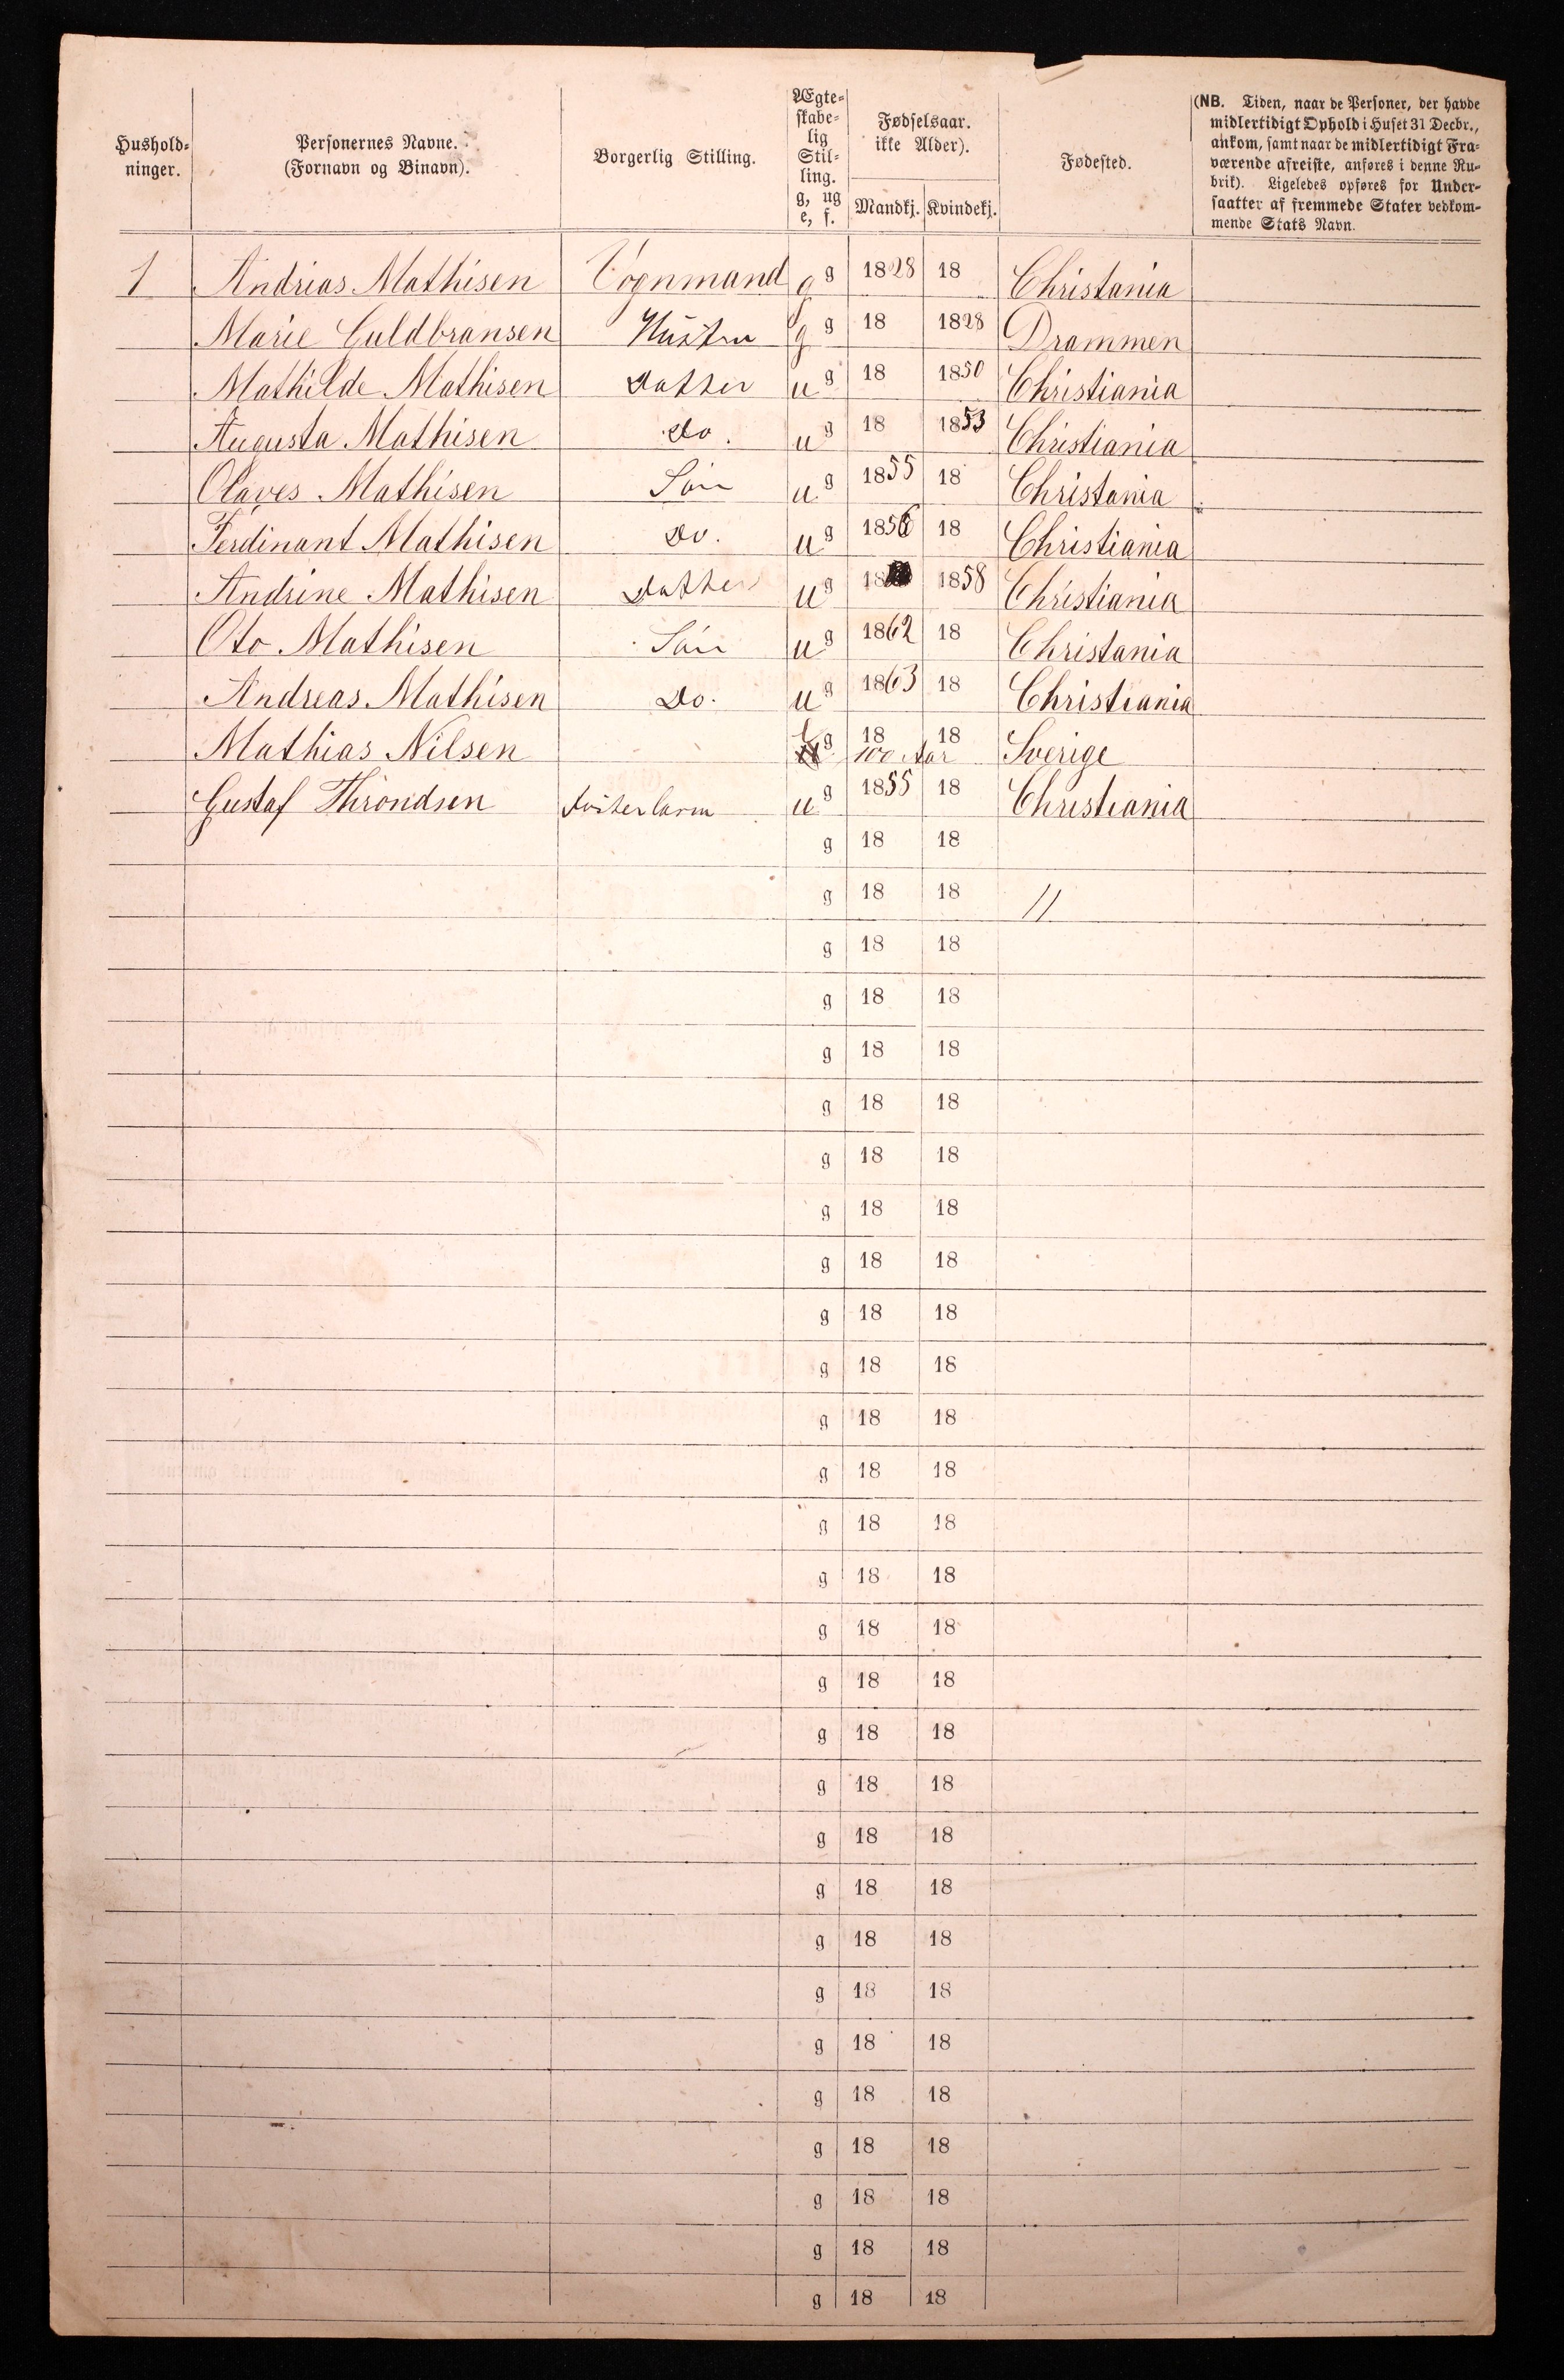 Hushold-
ninger.
Personernes Navne.
(Fornavn og Binavn).
Borgerlig Stilling.
Ægte-
skabe-
lig
Stil-
ling.
g, ug
e, f.
Fødselsaar.
ikke Alder).
Mandkj. Kvindekj.
Fødested.
(NB. Tiden, naar de Personer, der havde
midlertidigt Ophold i Huset 31 Decbr.,
ankom, samt naar de midlertidigt Fra-
værende afreiste, anføres i denne Ru-
brik). Ligeledes opføres for Under-
saatter af fremmede Stater vedkom-
mende Stats Navn.
1 Andrias Mathisen Vognmand g g 1828 18 Christania
Marie Guldbransen Hustru g g 18 1828 Drammen
Mathilde Mathisen Datter u g 18 1850 Christiania
Augusta Mathisen do. u g 18 1853 Christiania
Olaves Mathisen Søn u g 1855 18 Christania
Ferdinant Mathisen Do. u g 1856 18 Christiania
Andrine Mathisen Datter u g 18 1858 Christiania
Oto Mathisen Søn u g 1862 18 Christania
Andreas Mathisen Do. u g 1863 18 Christiania
Mathias Nilsen g 18 18 100 Aar Sverige
Gustaf Throndsen Fosterbarn u g 1855 18 Christiania
g 18 18
g 18 18 11
g 18 18
g 18 18
g 18 18
g 18 18
g 18 18
g 18 18
g 18 18
g 18 18
g 18 18
g 18 18
g 18 18
g 18 18
g 18 18
g 18 18
g 18 18
g 18 18
g 18 18
g 18 18
g 18 18
g 18 18
g 18 18
g 18 18
g 18 18
g 18 18
g 18 18
g 18 18
g 18 18